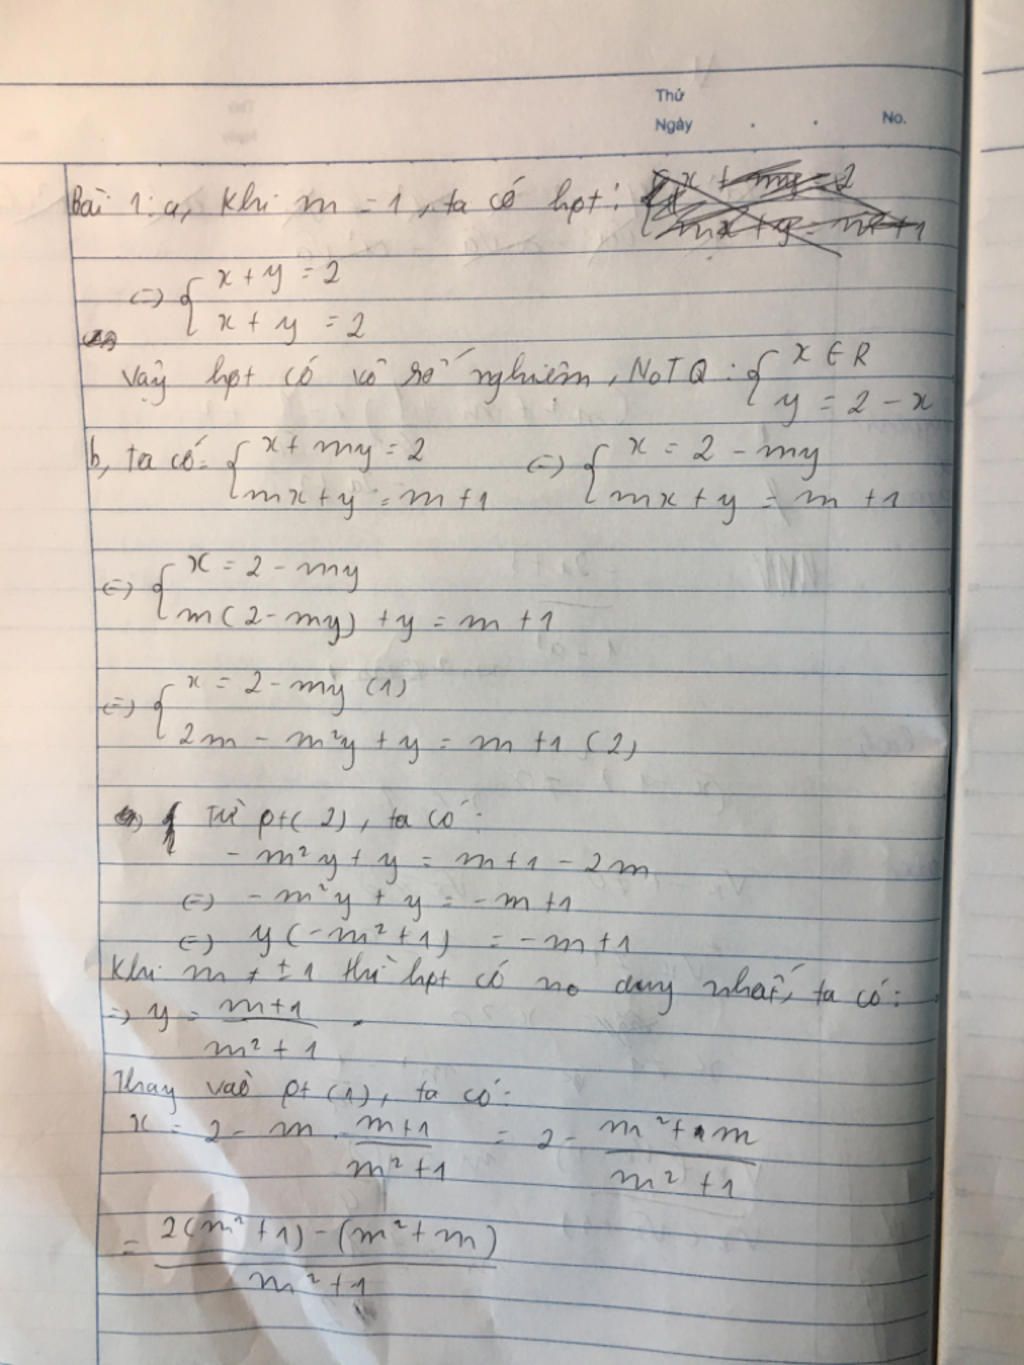 Thứ
Ngày . . No.
Bài 1: a, Khi m = 1, ta có hpt: { x + my = 2
mx + y = m + 1
<=> { x + y = 2
x + y = 2
Vậy hpt có vô số nghiệm, NoTQ: { x ∈ R
y = 2 - x
b, ta có: { x + my = 2 <=> { x = 2 - my
mx + y = m + 1 mx + y = m + 1
<=> { x = 2 - my
m(2 - my) + y = m + 1
<=> { x = 2 - my (1)
2m - m²y + y = m + 1 (2)
Từ pt(2), ta có:
- m²y + y = m + 1 - 2m
<=> - m²y + y = - m + 1
<=> y(-m² + 1) = - m + 1
Khi m ≠ ± 1 thì hpt có no duy nhất, ta có:
=> y = m + 1 / m² + 1
Thay vào pt (1), ta có:
x = 2 - m . m + 1 / m² + 1 = 2 - m² + m / m² + 1
= 2(m² + 1) - (m² + m) / m² + 1